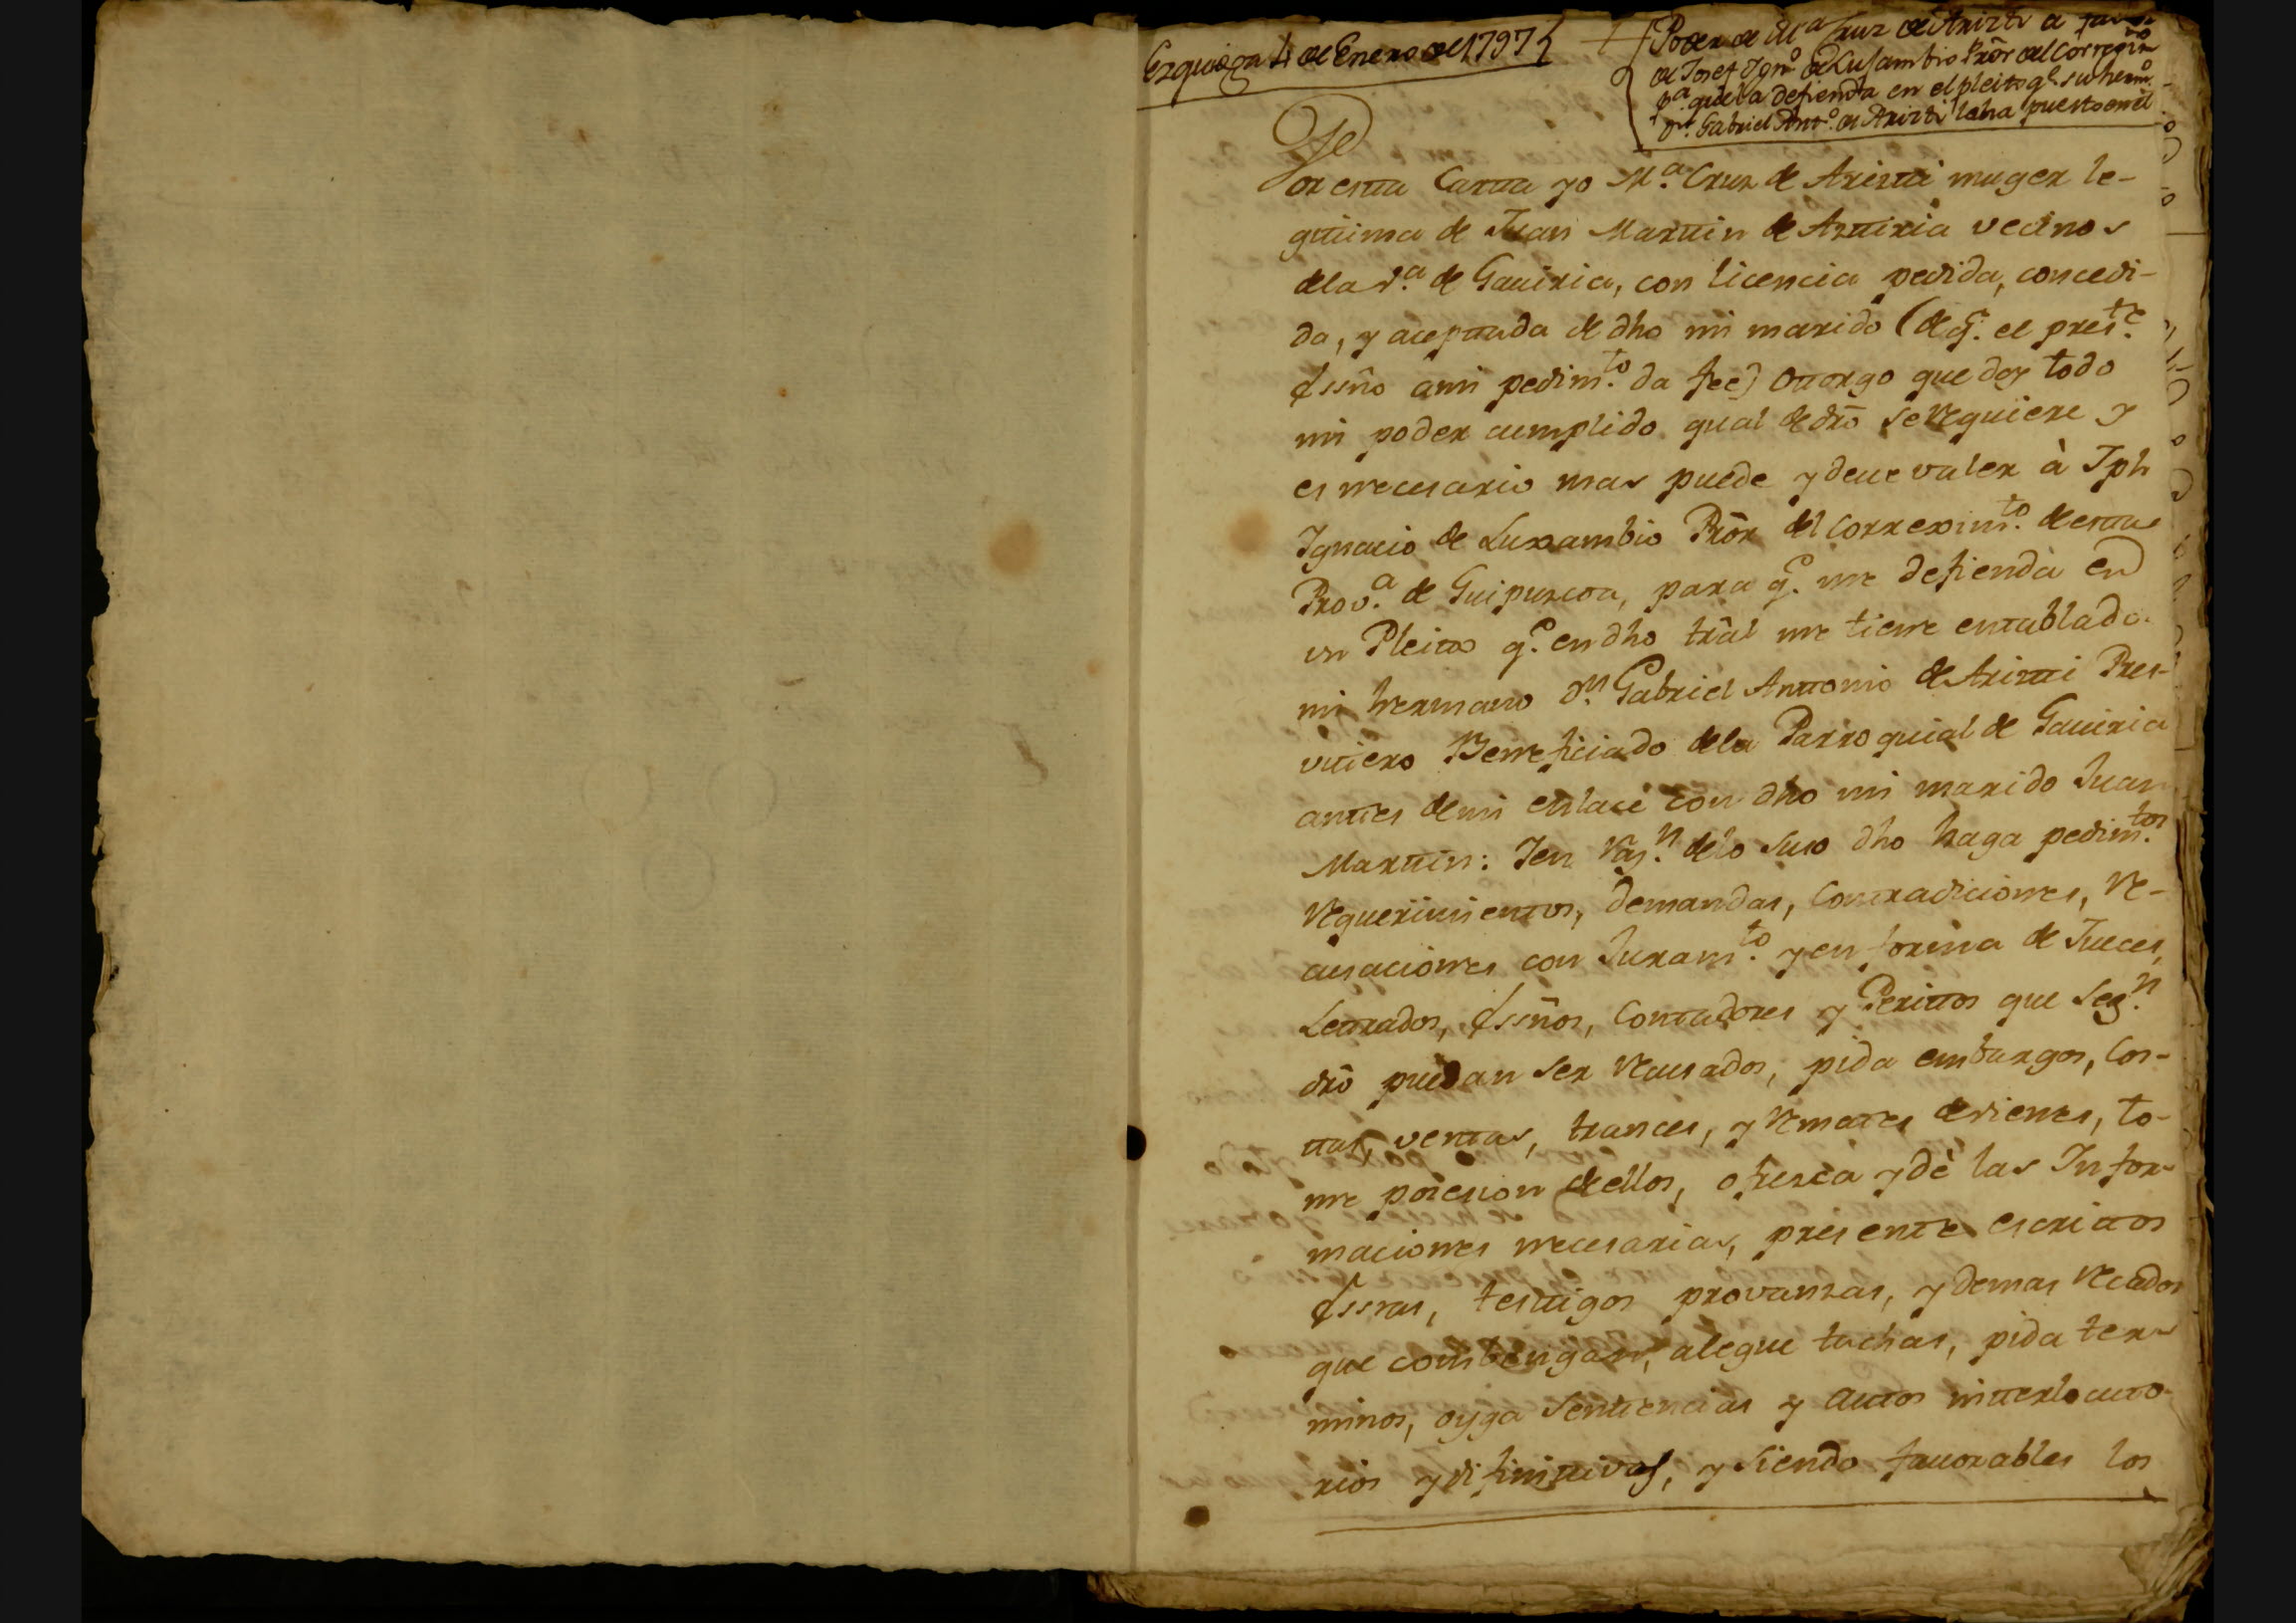 Ezquioga 4 de Enero de 1797
Poder de M.a Cruz de Arizti a favor
de Josef Ign.o de Lusambio Prõr del Corregim.to
p.a que la defienda en el pleito q.e su herm.o
D.n Gabriel Ant.o de Arizti la ha puesto en el
Por esta Carta yo M.a Cruz de Arizti muger le-
gitima de Juan Martin de Artiria vecinos
dela v.a de Gauiria, con licencia pedida, concedi-
da, y aceptada de dho mi marido (de q.e el pres.te
Essño ami pedim.to da fee) Otorgo que doy todo
mi poder cumplido qual de dro se requiere y
es necesario mas puede y deue valer à Jph
Ignacio de Luxambio Prõr del Correxim.to de esta
Prov.a de Guipuzcoa, para q.e me defienda en
un Pleito q.e en dho trãl me tiene entablado
mi hermano D.n Gabriel Antonio de Arizti Pres-
vitero Beneficiado dela Parroquial de Gauiria
antes de mi enlace con dho mi marido Juan
Martin: Y en raz.n delo suso dho haga pedim.tos
requerimientos, demandas, Contradiciones, re-
cusaciones con Juram.to y en forma de Jueces,
Letrados, Essños, Contadores y Peritos que seg.n
dro puedan ser recusados, pida embargos, Sol-
turas, ventas, trances, y remates de vienes, to-
me posesion de ellos, ofresca y dè las Infor-
maciones necesarias, presente escritos
Essras, testigos provanzas, y demas recados
que combengan, alegue tachas, pida ter-
minos, oyga sentencias y autos interlocuto-
rios y difinitivas, y siendo fauorables los